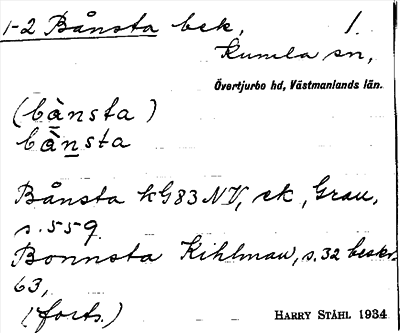 1-2 Bånsta bek, 1.
Kumla sn,
Övertjurbo hd, Västmanlands län.
(bànsta)
bànsta
Bånsta kG83NV, ek, Grau,
s. 559.
Bonnsta Kihlman, s. 32 beskr.
63,
(forts.)
HARRY STÅHL 1934